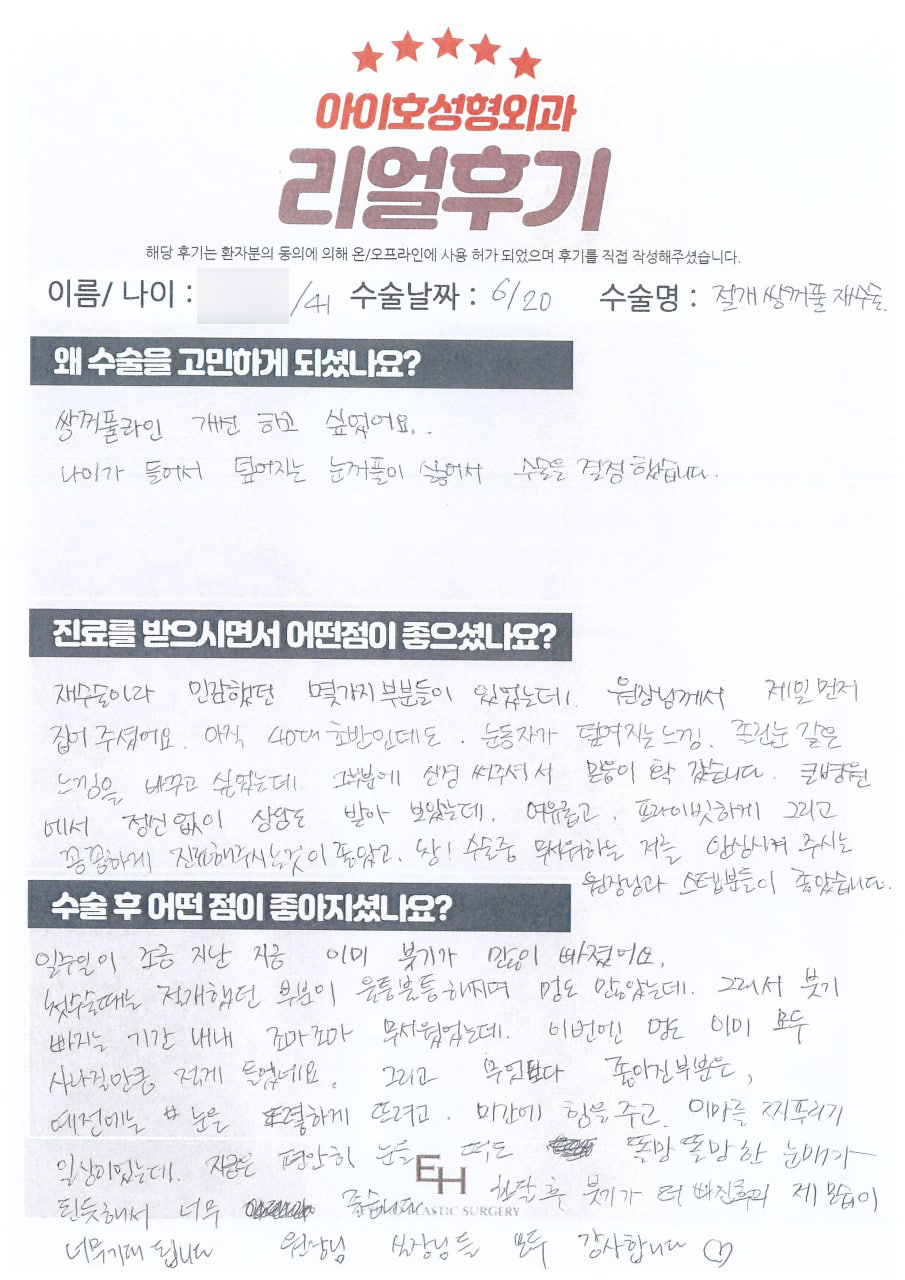 아이호성형외과
리얼후기
해당 후기는 환자분의 동의에 의해 온/오프라인에 사용 허가 되었으며 후기를 직접 작성해주셨습니다.
이름/ 나이 : /41 수술날짜 : 6/20 수술명 : 절개 쌍꺼풀 재수술.
왜 수술을 고민하게 되셨나요?
쌍꺼풀라인 개선 하고 싶었어요..
나이가 들어서 덮어지는 눈꺼풀이 싫어서 수술을 결정 했습니다.
진료를 받으시면서 어떤점이 좋으셨나요?
재수술이라 민감했던 몇가지 부분들이 있었는데. 원장님께서 제일 먼저
집어 주셨어요. 아직 40대 초반인데도. 눈동자가 덮여지는 느낌. 졸린눈 같은
느낌을 바꾸고 싶었는데 그부분에 신경 써주셔서 믿음이 확 갔습니다. 큰병원
에서 정신 없이 상담도 받아 보았는데. 여유롭고, 프라이빗하게 그리고
꼼꼼하게 진료해주시는것이 좋았고, 또! 수술중 무서워하는 저를 안심시켜 주시는
원장님과 스텝분들이 좋았습니다.
수술 후 어떤 점이 좋아지셨나요?
일주일이 조금 지난 지금 이미 붓기가 많이 빠졌어요.
첫수술때는 절개했던 부분이 울퉁불퉁해지며 멍도 많았는데. 그래서 붓기
빠지는 기간 내내 조마조마 무서웠었는데. 이번에는 멍은 이미 모두
사라질만큼 적게 들었네요. 그리고 무엇보다 좋아진부분은,
예전에는 눈을 또렷하게 뜨려고. 미간에 힘을 주고. 이마를 찌푸리기
일상이었는데. 지금은 편안히 눈을 떠도 똘망똘망한 눈매가
된듯해서 너무 좋습니다. 한달 후 붓기가 더 빠진후의 제 모습이
너무기대 됩니다 원장님 실장님들 모두 감사합니다 ♡
EH
PLASTIC SURGERY